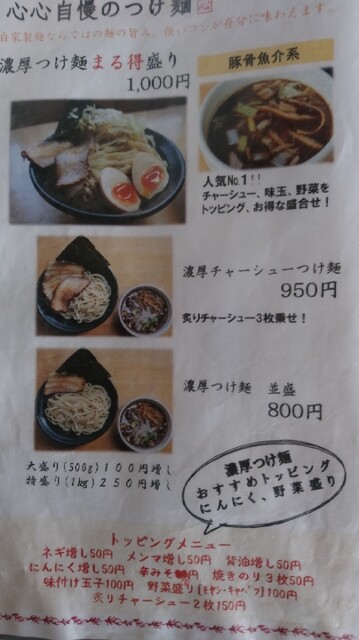 心心自慢のつけ麺
自家製麺ならではの麺の旨み、強いコシが存分に味わえます…
濃厚つけ麺まる得盛り
1,000円
豚骨魚介系
人気No.1!!
チャーシュー、味玉、野菜を
トッピング、お得な盛合せ!
濃厚チャーシューつけ麺
950円
炙りチャーシュー3枚乗せ!
濃厚つけ麺 並盛
800円
大盛り(500g)100円増し
特盛り(1kg)250円増し
濃厚つけ麺
おすすめトッピング
にんにく、野菜盛り
トッピングメニュー
ネギ増し50円 メンマ増し50円 背油増し50円
にんにく増し50円 辛みそ 円 焼きのり3枚50円
味付け玉子100円 野菜盛り[モヤシ・キャベツ]100円
炙りチャーシュー2枚150円